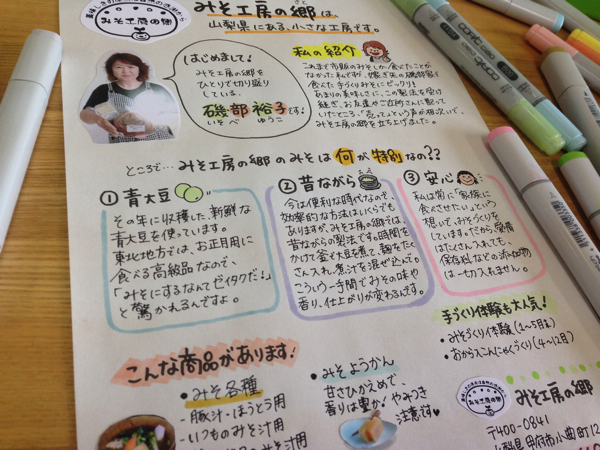 みそ工房の郷
みそ工房の郷は、
さと
山梨県にある、小さな工房です。
はじめまして!
みそ工房の郷を
ひとりで切り盛り
している、
磯部裕子です!
いそべ ゆうこ
私の紹介
これまで市販のみそしか食べたことが
なかった私ですが、嫁ぎ先の磯部家で
食べた手づくりみそにビックリ!
あまりの美味しさに、この製法を受け
継ぎ、お友達やご近所さんに配って
いたところ、「売って」という声が相次いで、
みそ工房の郷を立ち上げました。
ところで…みそ工房の郷のみそは何が特別なの??
① 青大豆
その年に収穫した、新鮮な
青大豆を使っています。
東北地方では、お正月用に
食べる高級品なので、
「みそにするなんてゼイタクだ!」
と驚かれるんですよ。
② 昔ながら
今は便利な時代なので、
効率的な方法はいくらでも
ありますが、みそ工房の郷では、
昔ながらの製法です。時間を
かけて釜で大豆を煮て、麹をたく
さん入れ、煮汁を混ぜ込んで。
こういう一手間でみその味や
香り、仕上がりが変わるんです。
③ 安心
私は常に「家族に
食べさせたい」という
想いで、みそづくりを
しています。だから愛情
はたくさん入れても、
保存料などの添加物
は一切入れません。
手づくり体験も大人気!
・みそづくり体験(1〜5月まで)
・おからこんにゃくづくり(4〜12月)
こんな商品があります!
・みそ各種
-豚汁・ほうとう用
-いつものみそ汁用
みそ汁用
・みそようかん
甘さひかえめで、
香りは豊か!やみつき
注意です♥
みそ工房の郷
みそ工房の郷
〒400-0841
山梨県甲府市小曲町12